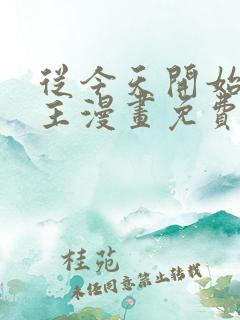 從今天開始
王漫畫免費
桂苑
未經同意禁止轉載